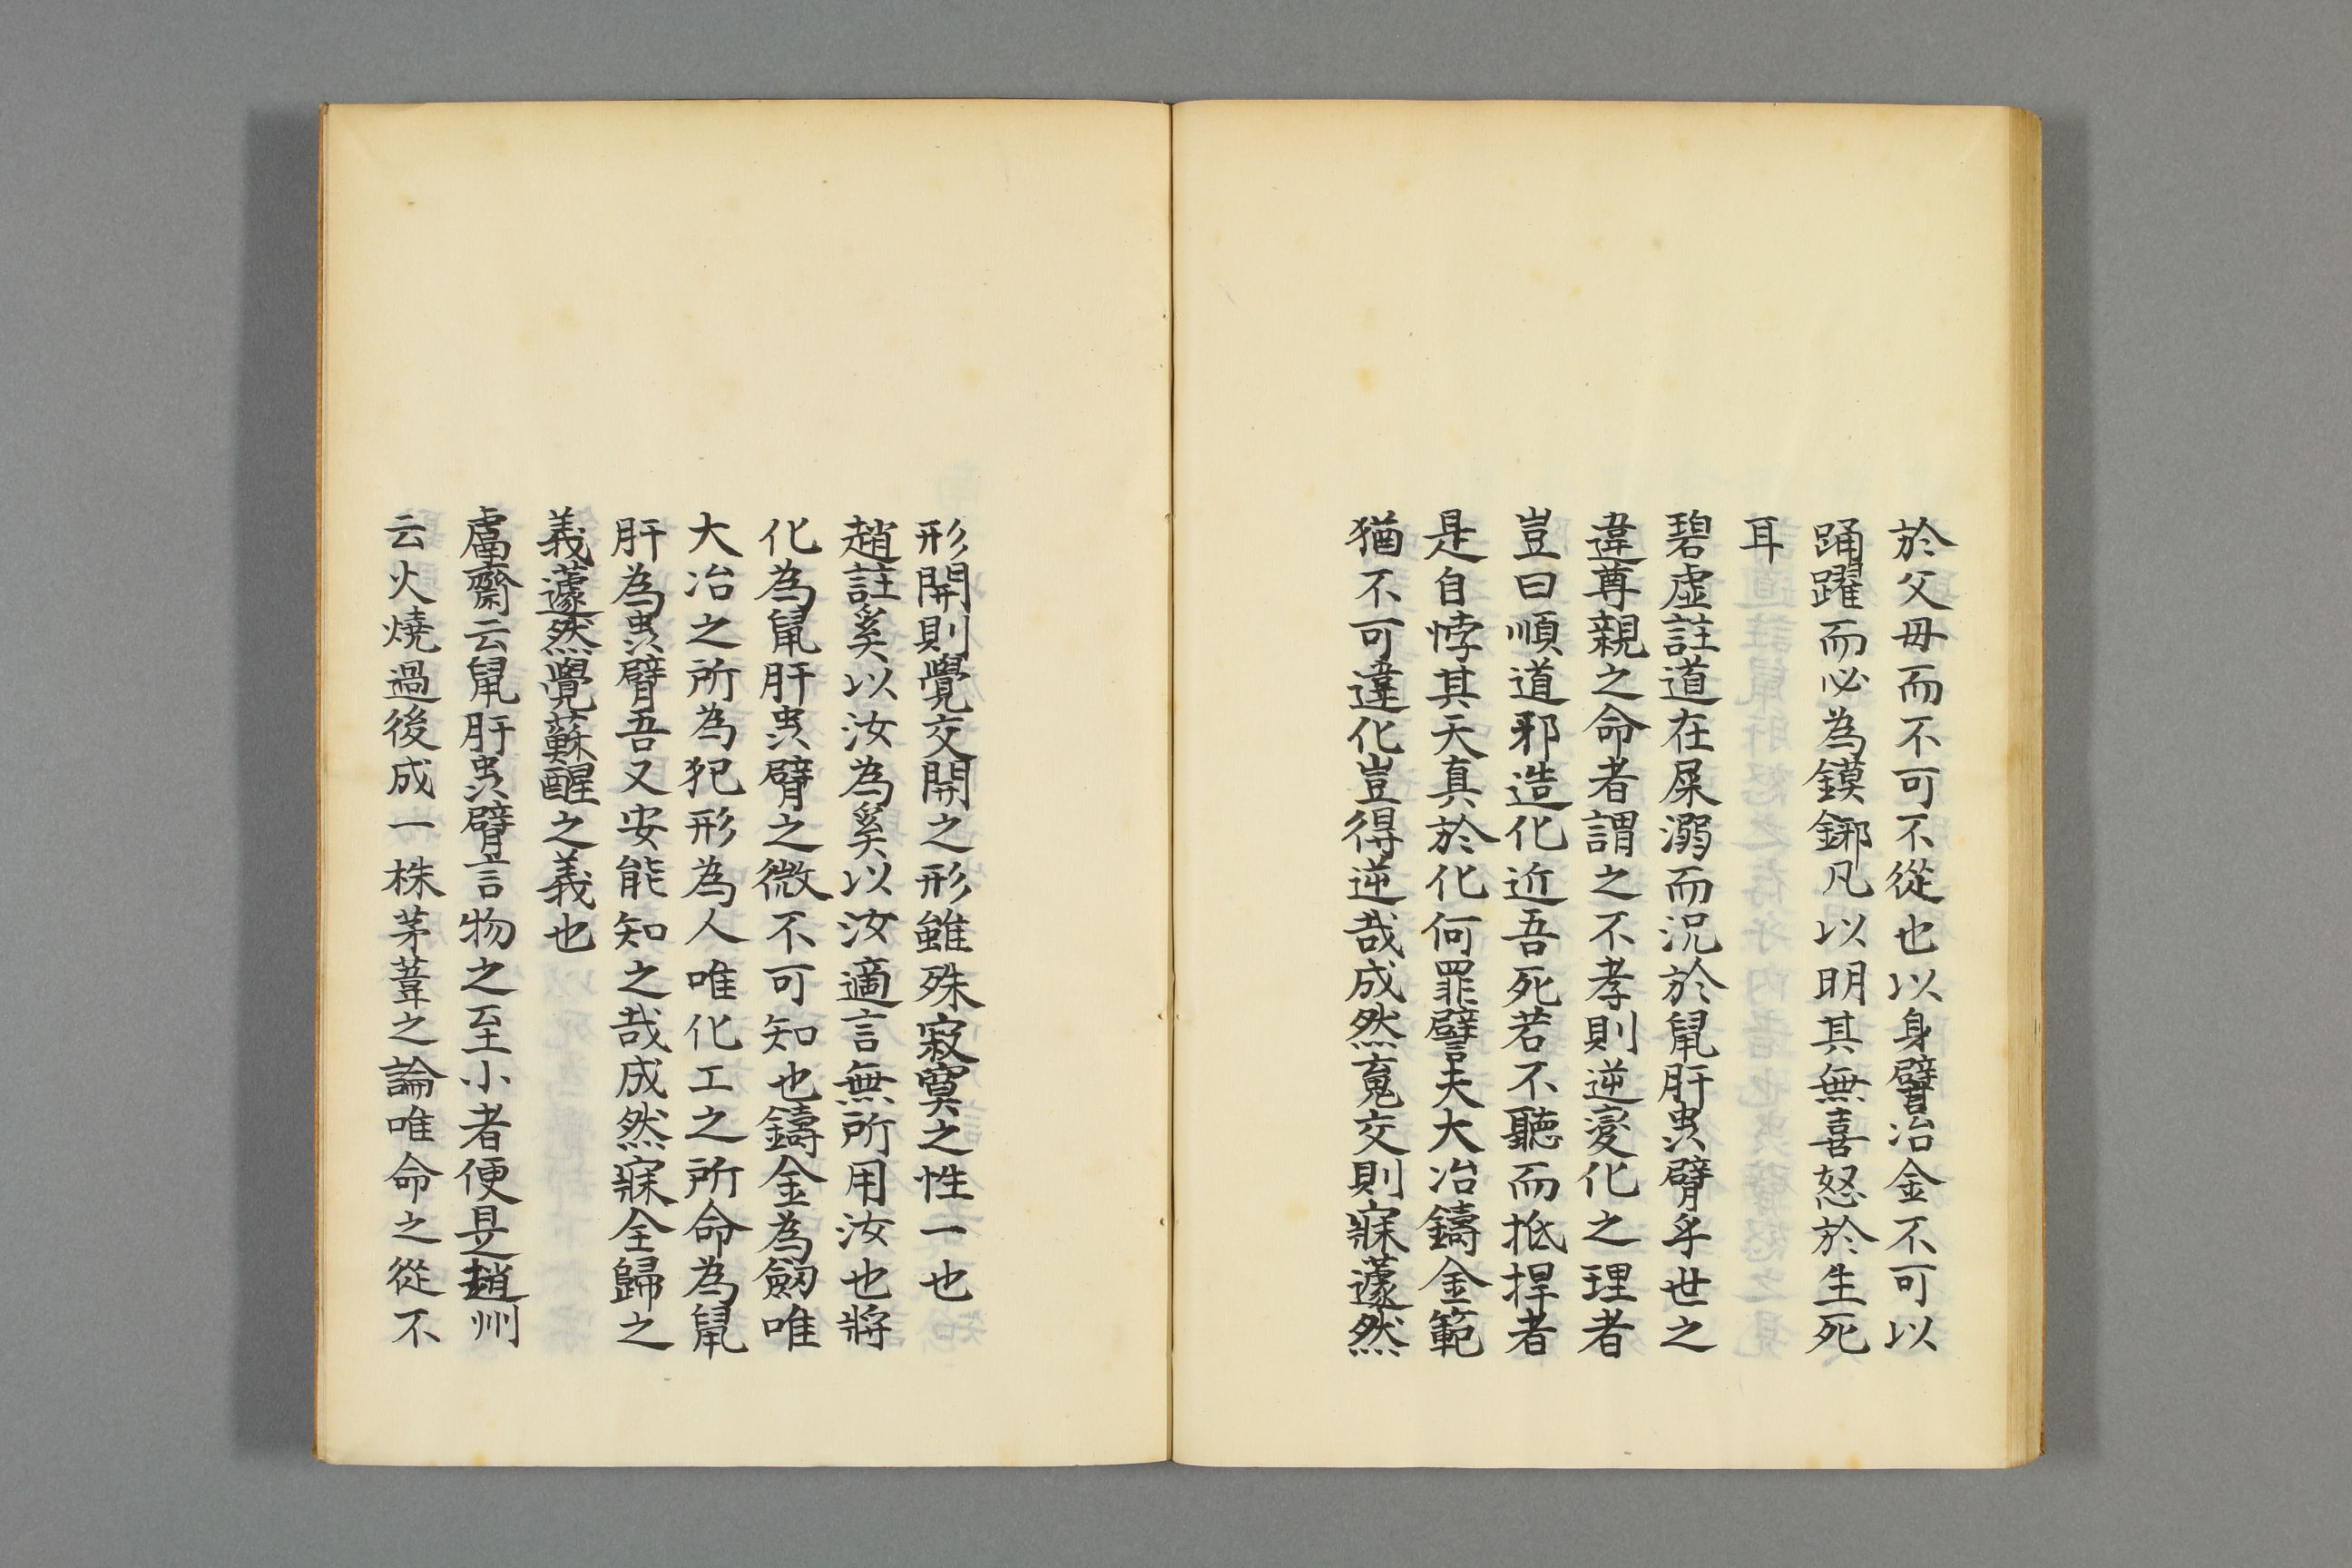 於父母而不可不從也以身譬冶金不可以
踊躍而必為鏌鋣凡以明其無喜怒於生死
耳
碧虛註道在屎溺而況於鼠肝䖝臂乎世之
違尊親之命者謂之不孝則逆變化之理者
豈曰順道邪造化近吾死若不聽而抵捍者
是自悖其天真於化何罪譬夫大冶鑄金範
猶不可違化豈得逆哉成然䰟交則寐蘧然
形開則覺交開之形雖殊寂寞之性一也
趙註奚以汝為奚以汝適言無所用汝也將
化為鼠肝䖝臂之微不可知也鑄金為劔唯
大冶之所為犯形為人唯化工之所命為鼠
肝為䖝臂吾又安能知之哉成然寐全歸之
義蘧然覺蘇醒之義也
鬳齋云鼠肝䖝臂言物之至小者便是趙州
云火燒過後成一株茅葦之論唯命之從不